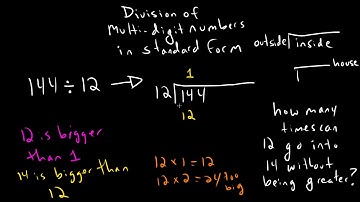 Division of
multi-digit numbers
in standard form
outside inside
house
144 ÷ 12
1
12 144
12
how many
times can
12 go into
14 without
being greater?
12 is bigger
than 1
14 is bigger than
12
12 × 1 = 12
12 × 2 = 24 too
big